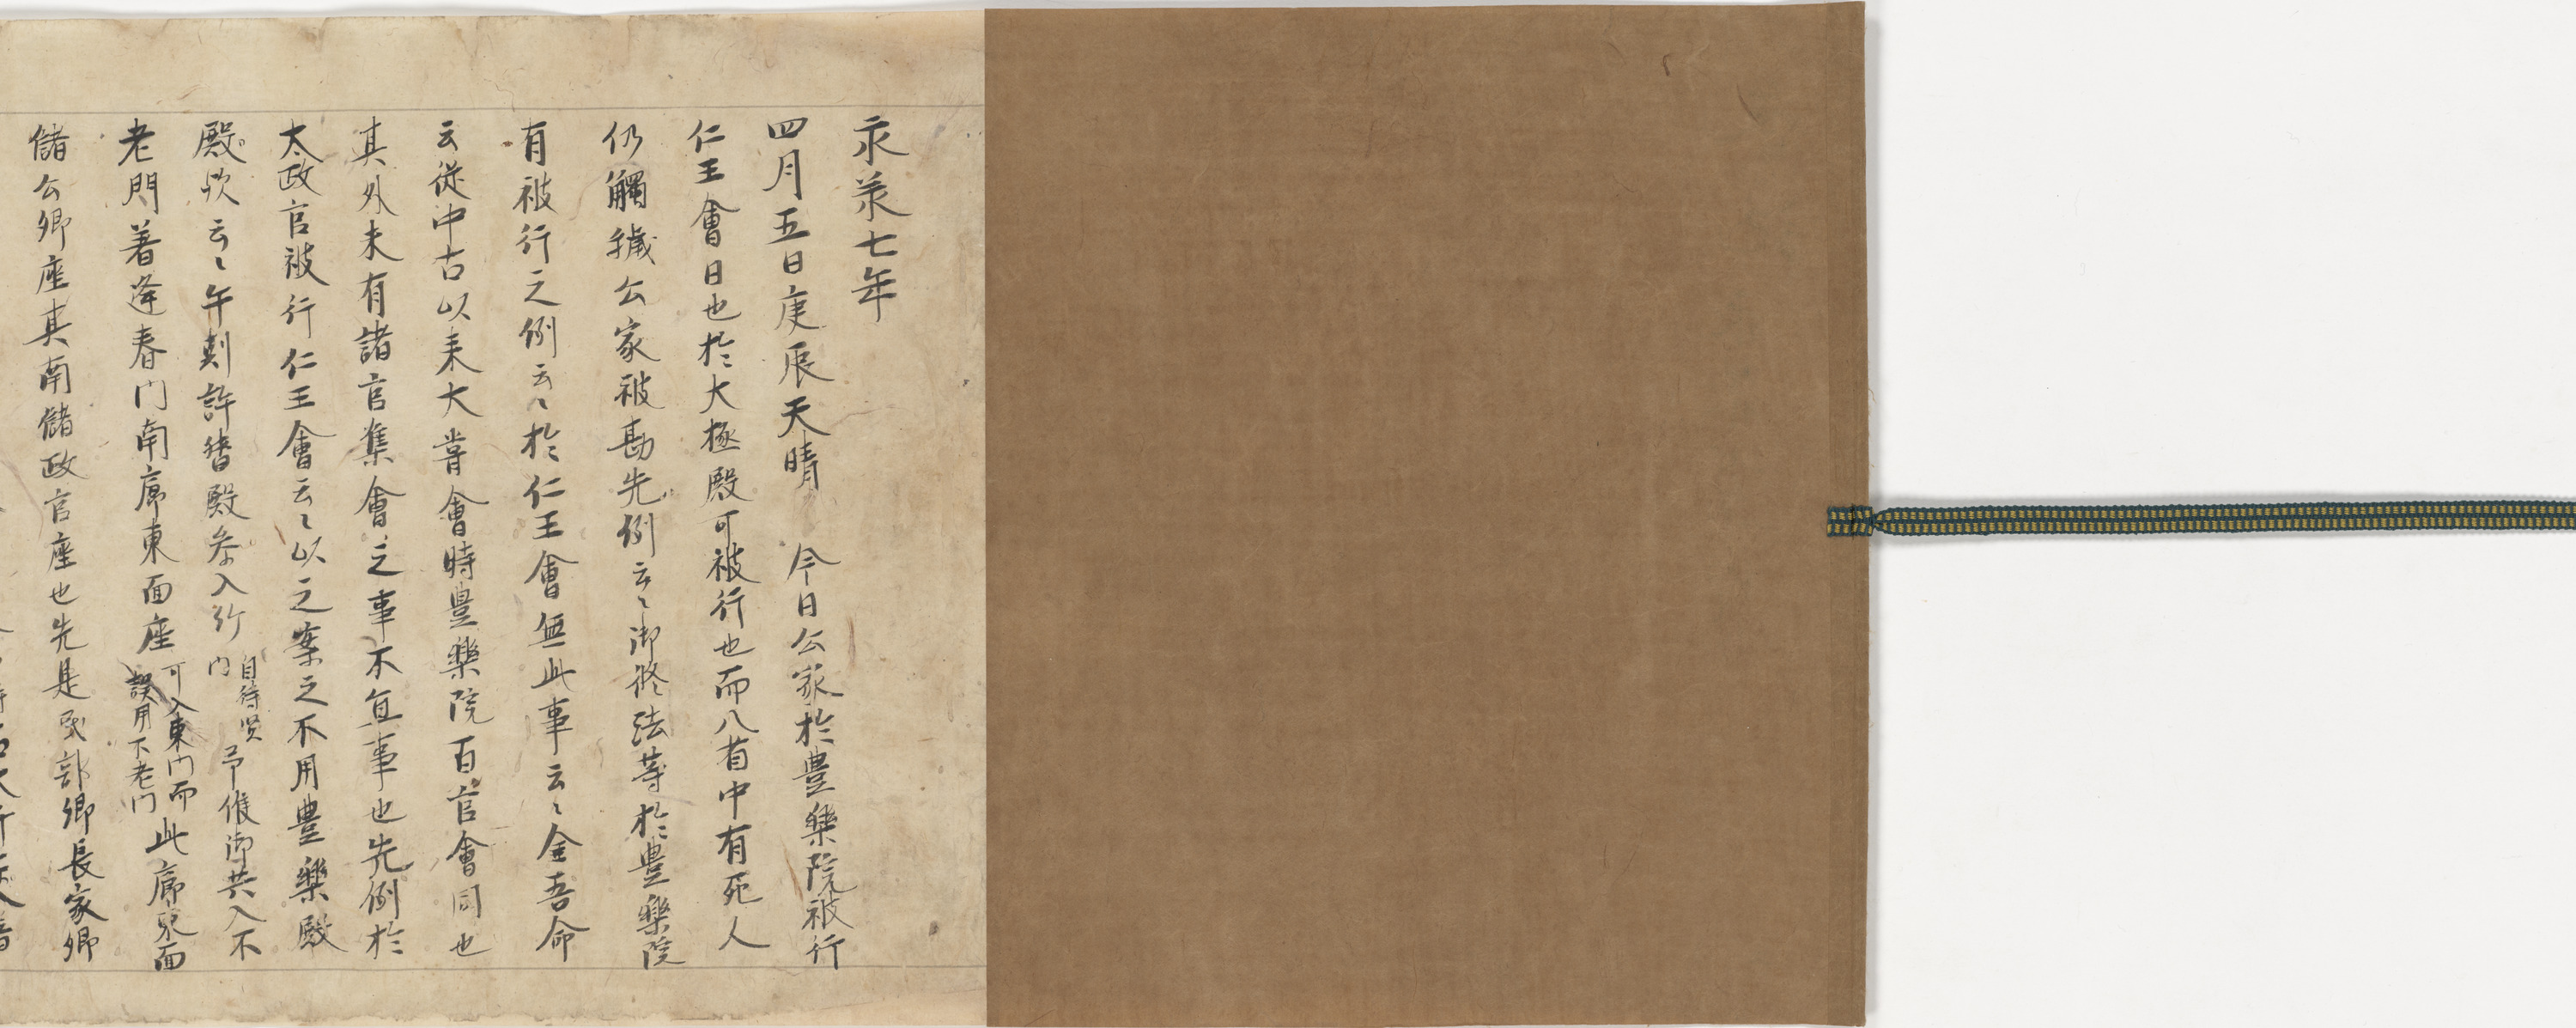 永承七年
四月五日庚辰天晴　今日公家於豊樂院被行
仁王會日也於大極殿可被行也而八省中有死人
仍觸穢公家被勘先例云〻御修法等於豊樂院
有被行之例云〻於仁王會無此事云〻金吾命
云從中古以来大嘗會時豊樂院百官會同也
其外未有諸官集會之事不宜事也先例於
太政官被行仁王會云〻以之案之不用豊樂殿
殿欤云〻午剋許督殿参入給
自待賢
門
予候御共入不
老門着逢春門南廊東面座
可入東門而
誤用不老門
此廊東面
儲公卿座其南儲政官座也先是民部卿長家卿